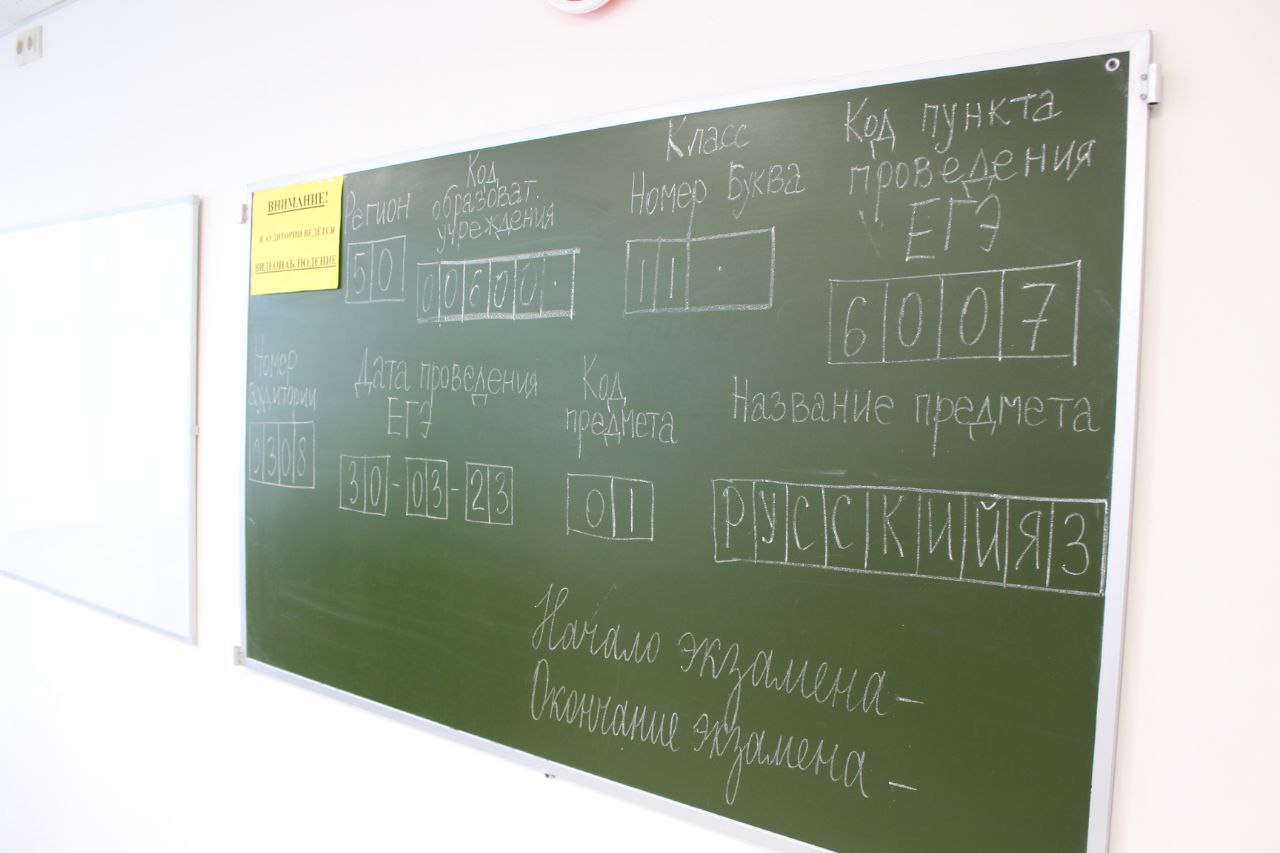 ВНИМАНИЕ!
В АУДИТОРИИ ВЕДЁТСЯ
ВИДЕОНАБЛЮДЕНИЕ
Регион
50
Код
образоват.
учреждения
00600.
Класс
Номер Буква
11 .
Код пункта
проведения
ЕГЭ
6007
Номер
аудитории
Дата проведения
ЕГЭ
30-03-23
Код
предмета
01
Название предмета
РУССКИЙЯЗ
Начало экзамена –
Окончание экзамена –